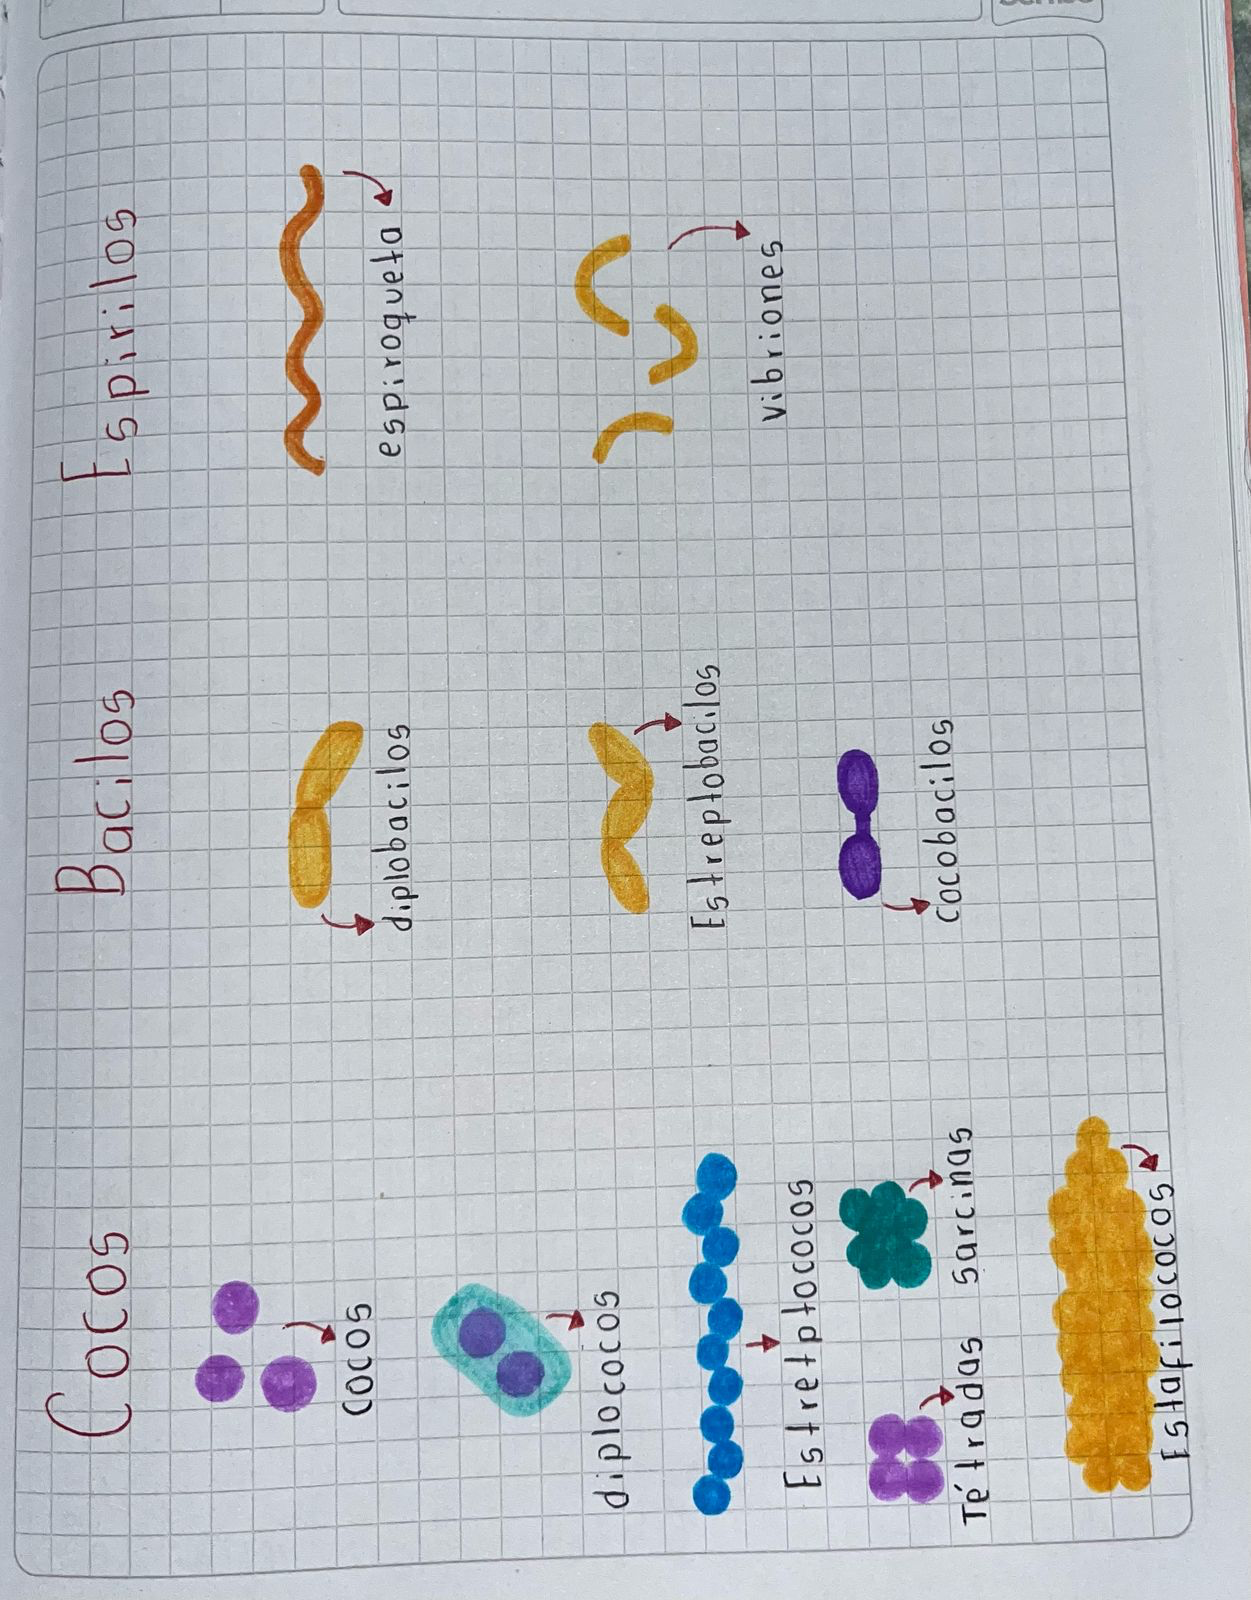 Cocos
cocos
diplococos
Estretptococos
Tétradas
Sarcinas
Estafilococos
Bacilos
diplobacilos
Estreptobacilos
cocobacilos
Espirilos
espiroqueta
Vibriones